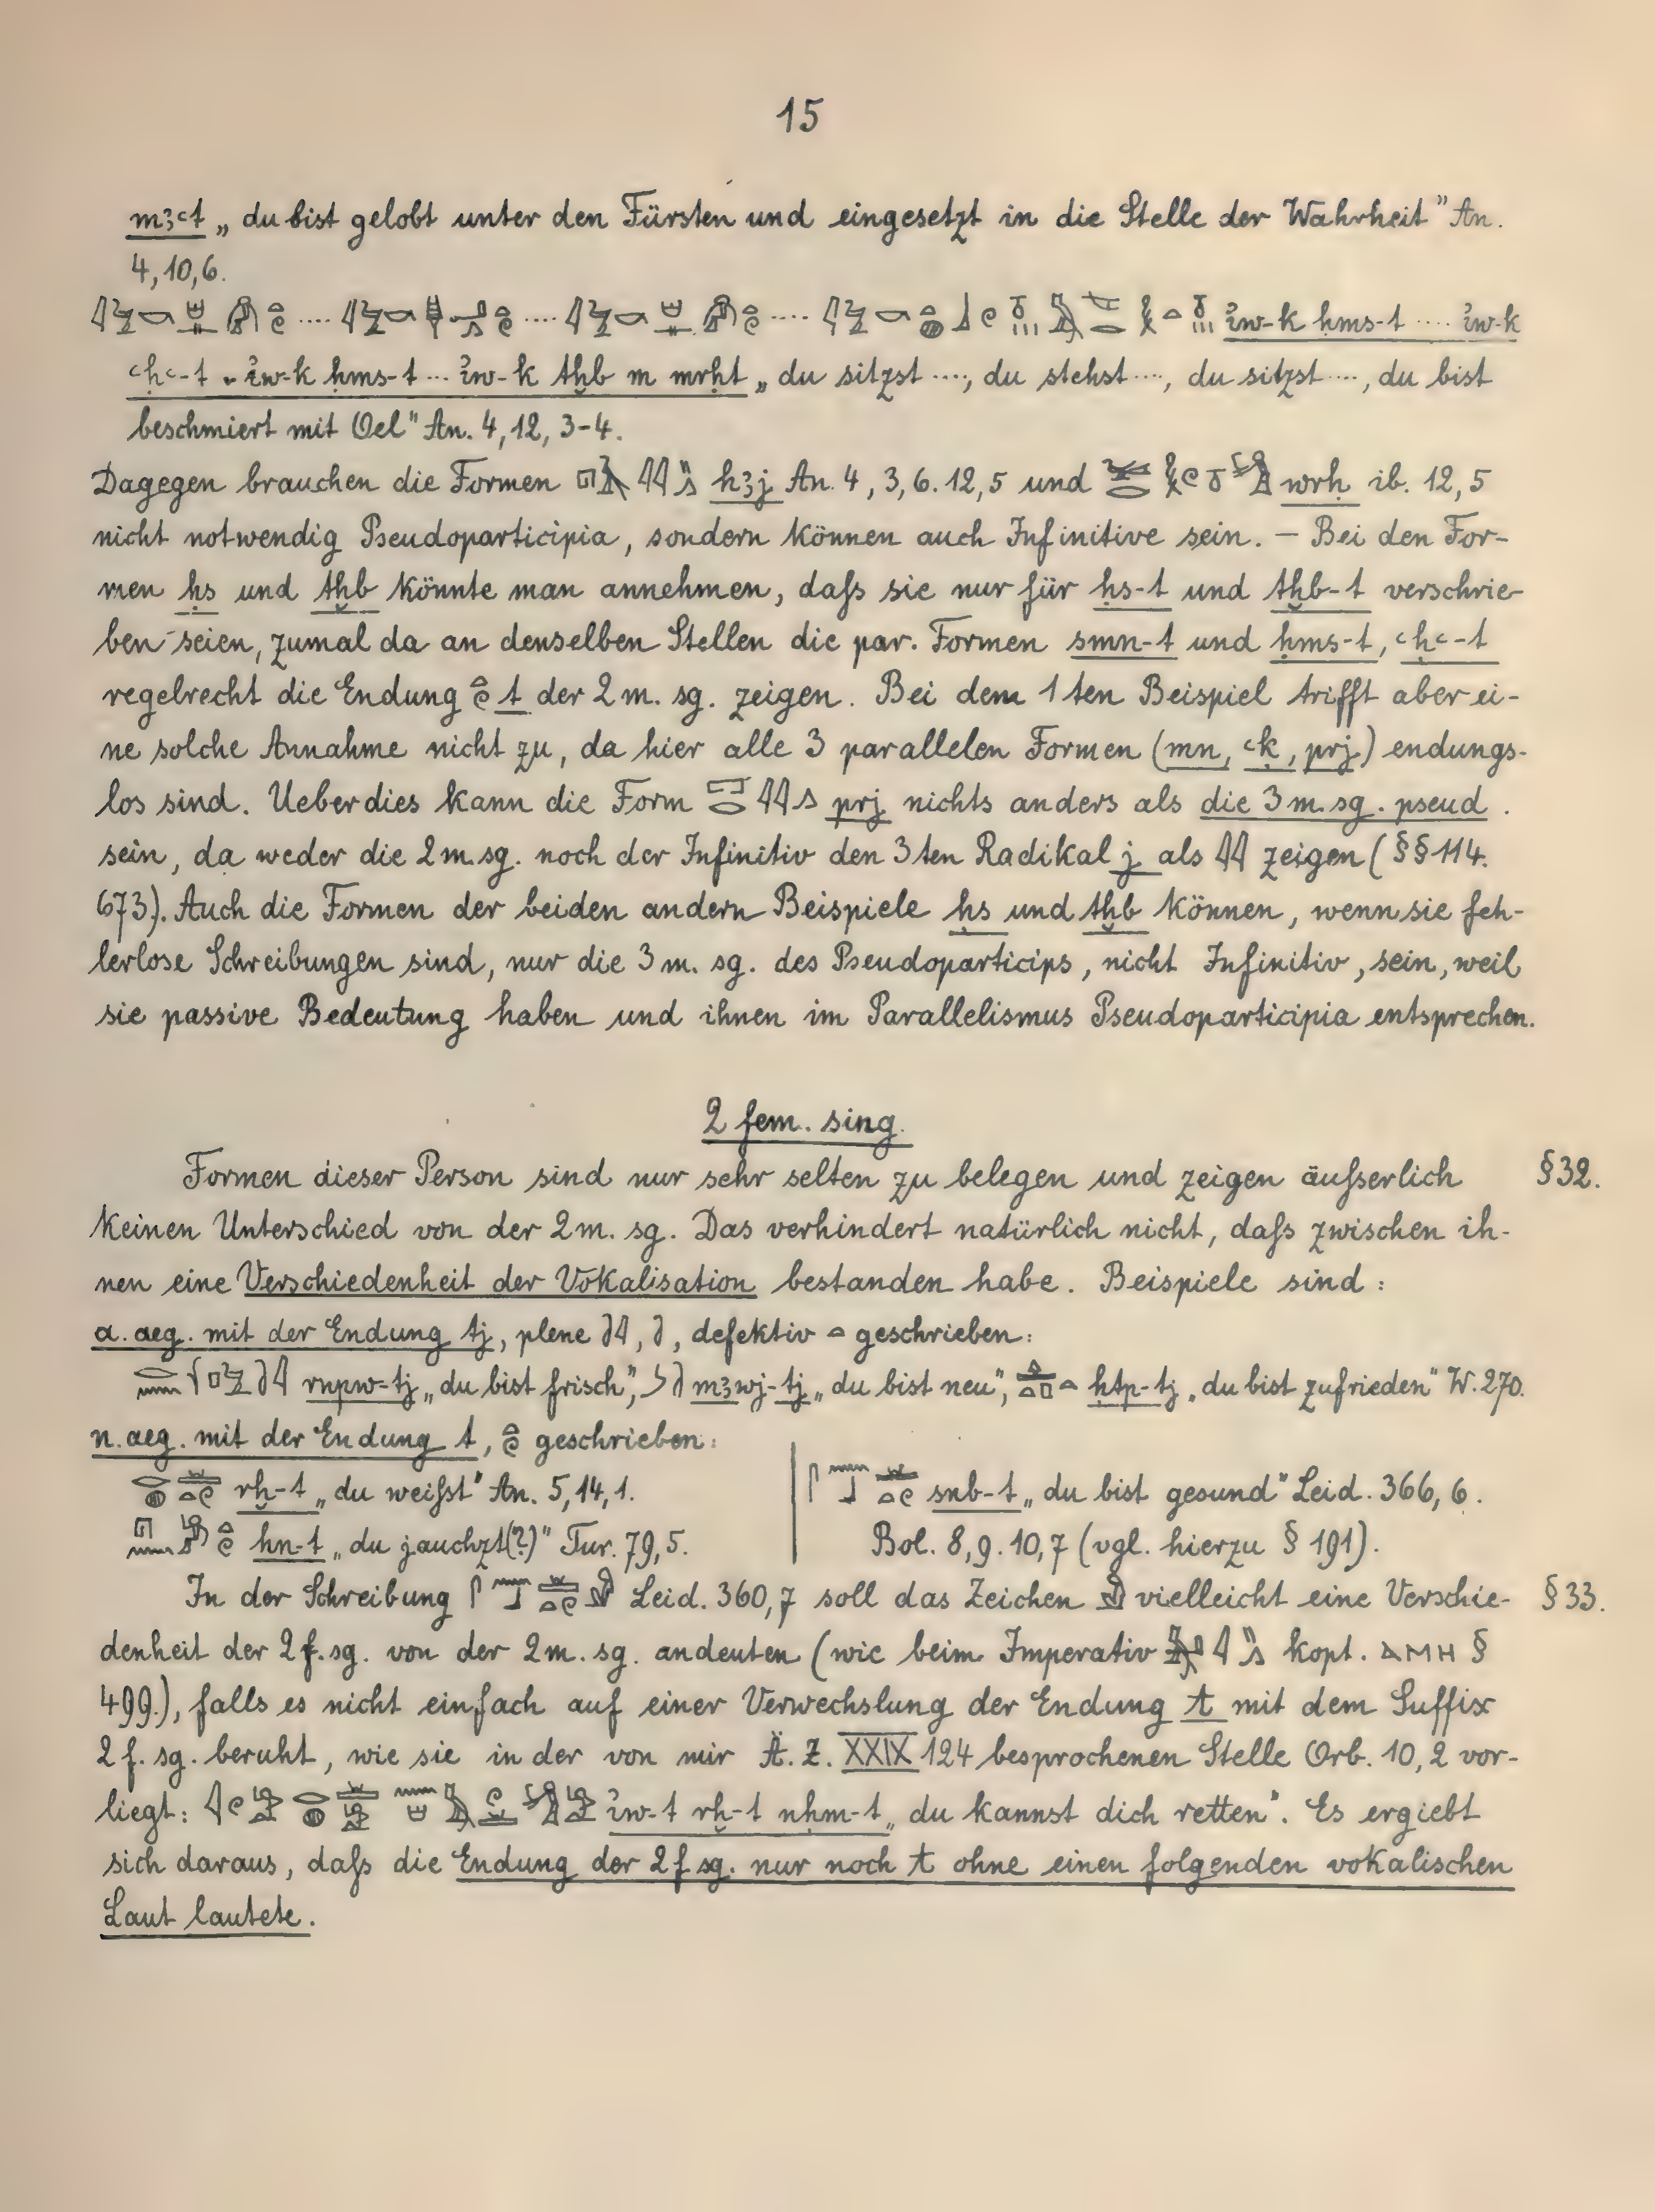 15
m3ꜥt „du bist gelobt unter den Fürsten und eingesetzt in die Stelle der Wahrheit" An.
4,10,6.
.... .... .... i̓w-k ḥms-t .... i̓w-k
ꜥḥꜥ-t .. i̓w-k ḥms-t ... i̓w-k tḫb m mrḥt „du sitzst ...., du stehst ...., du sitzst ...., du bist
beschmiert mit Oel" An. 4, 12, 3-4.
Dagegen brauchen die Formen h3j An. 4, 3, 6. 12, 5 und wrḥ ib. 12, 5
nicht notwendig Pseudoparticipia, sondern können auch Infinitive sein. – Bei den For-
men ḥs und tḫb könnte man annehmen, daſs sie nur für ḥs-t und tḫb-t verschrie-
ben seien, zumal da an denselben Stellen die par. Formen smn-t und ḥms-t, ꜥḥꜥ-t
regelrecht die Endung t der 2 m. sg. zeigen. Bei dem 1 ten Beispiel trifft aber ei-
ne solche Annahme nicht zu, da hier alle 3 parallelen Formen (mn, ꜥḳ, prj) endungs-
los sind. Ueberdies kann die Form prj nichts anders als die 3 m. sg. pseud.
sein, da weder die 2 m. sg. noch der Infinitiv den 3 ten Radikal j als 𓇋𓇋 zeigen (§§ 114.
673). Auch die Formen der beiden andern Beispiele ḥs und tḫb können, wenn sie feh-
lerlose Schreibungen sind, nur die 3 m. sg. des Pseudoparticips, nicht Infinitiv, sein, weil
sie passive Bedeutung haben und ihnen im Parallelismus Pseudoparticipia entsprechen.
2 fem. sing.
Formen dieser Person sind nur sehr selten zu belegen und zeigen äuſserlich § 32.
keinen Unterschied von der 2 m. sg. Das verhindert natürlich nicht, daſs zwischen ih-
nen eine Verschiedenheit der Vokalisation bestanden habe. Beispiele sind:
a. aeg. mit der Endung tj, plene 𓍘𓇋, 𓍘, defektiv 𓏏 geschrieben:
rnpw-tj „du bist frisch", m3wj-tj „du bist neu", ḥtp-tj „du bist zufrieden" W. 270.
n. aeg. mit der Endung t, geschrieben:
rḫ-t „du weiſst" An. 5, 14, 1.
hn-t „du jauchzt(?)" Tur. 79, 5.
snb-t „du bist gesund" Leid. 366, 6.
Bol. 8, 9. 10, 7 (vgl. hierzu § 191).
In der Schreibung Leid. 360, 7 soll das Zeichen vielleicht eine Verschie- § 33.
denheit der 2 f. sg. von der 2 m. sg. andeuten (wie beim Imperativ kopt. ⲁⲙⲏ §
499.), falls es nicht einfach auf einer Verwechslung der Endung t mit dem Suffix
2 f. sg. beruht, wie sie in der von mir Ä. Z. XXIX 124 besprochenen Stelle Orb. 10, 2 vor-
liegt: i̓w-t rḫ-t nḥm-t „du kannst dich retten". Es ergiebt
sich daraus, daſs die Endung der 2 f. sg. nur noch t ohne einen folgenden vokalischen
Laut lautete.